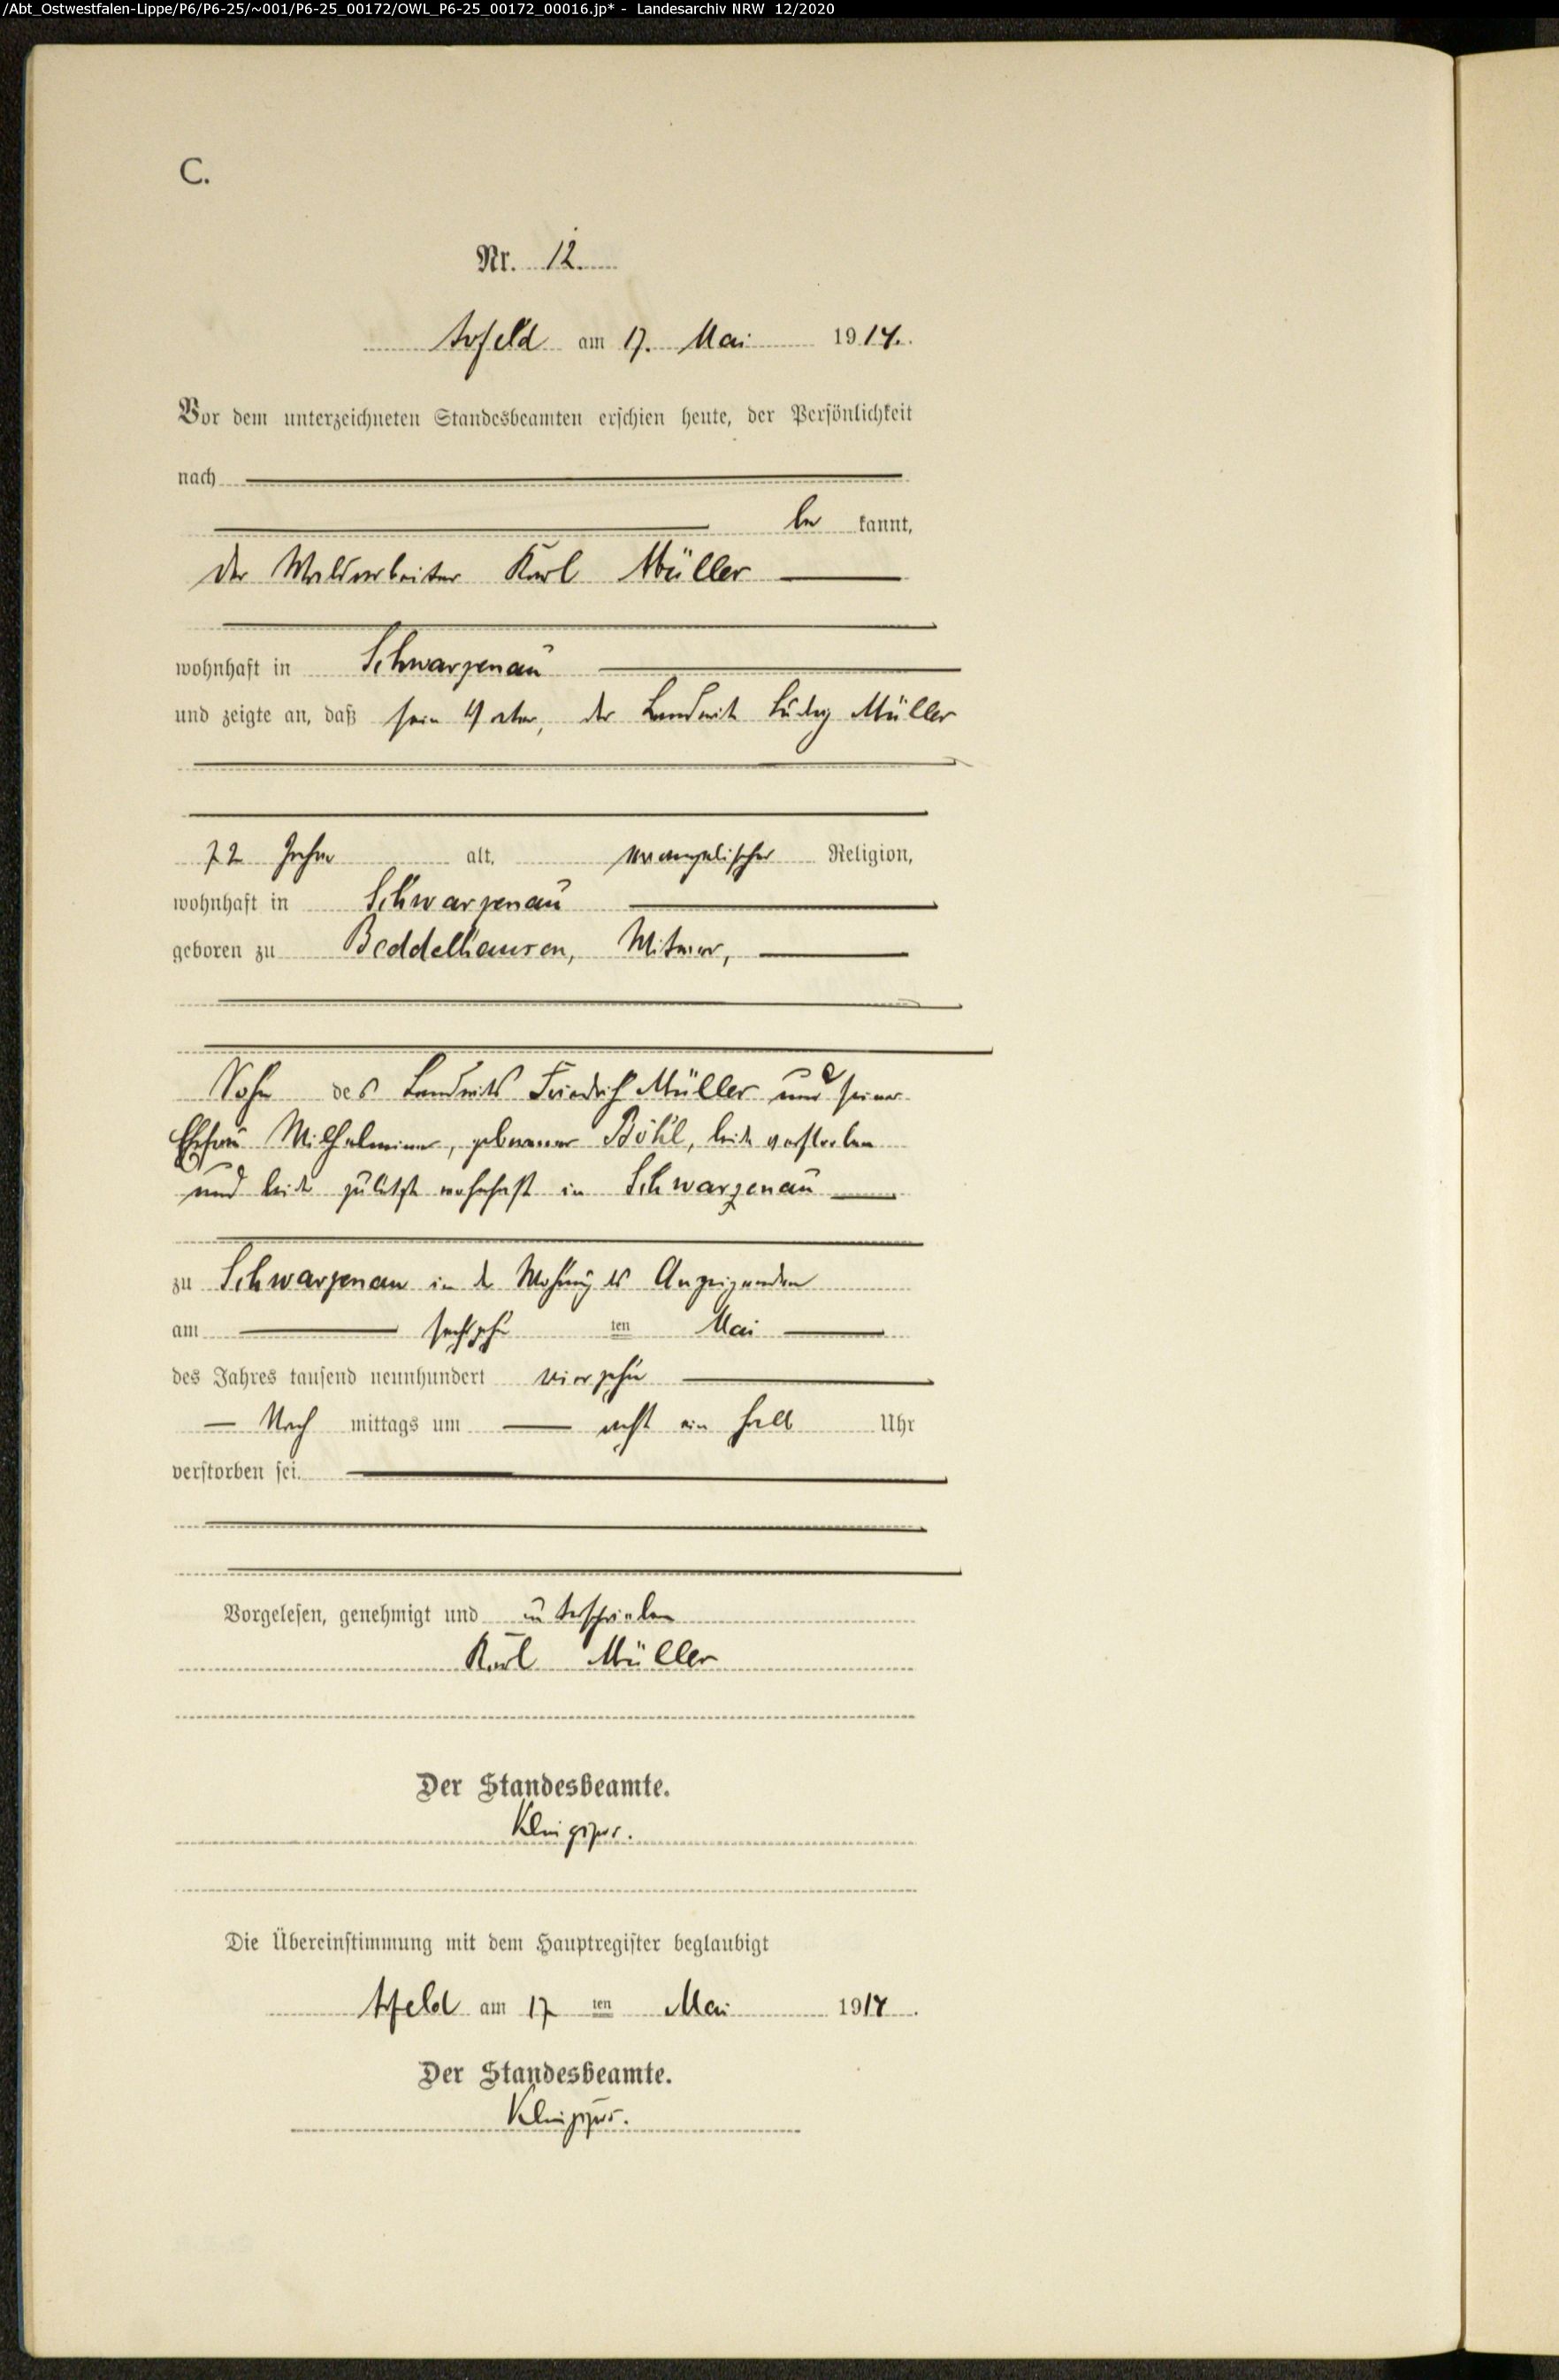 /Abt_Ostwestfalen-Lippe/P6/P6-25/~001/P6-25_00172/OWL_P6-25_00172_00016.jp* - Landesarchiv NRW 12/2020
C.
Nr. 12.
Arfeld am 17. Mai 1914.
Vor dem unterzeichneten Standesbeamten erschien heute, der Persönlichkeit
nach
be kannt,
der Waldarbeiter Karl Müller
wohnhaft in Schwarzenau
und zeigte an, daß sein Vater, der Landwirt Ludwig Müller
72 Jahre alt, evangelischer Religion,
wohnhaft in Schwarzenau
geboren zu Beddelhausen, Witwer,
Sohn des Landwirts Friedrich Müller und seiner
Ehefrau Wilhelmine, geborener Böhl, beide verstorben
und beide zuletzt wohnhaft in Schwarzenau
zu Schwarzenau in der Wohnung des Anzeigenden
am sechszehn ten Mai
des Jahres tausend neunhundert vierzehn
Nach mittags um acht ein halb Uhr
verstorben sei.
Vorgelesen, genehmigt und unterschrieben
Karl Müller
Der Standesbeamte.
Die Übereinstimmung mit dem Hauptregister beglaubigt
Arfeld am 17 ten Mai 1914.
Der Standesbeamte.